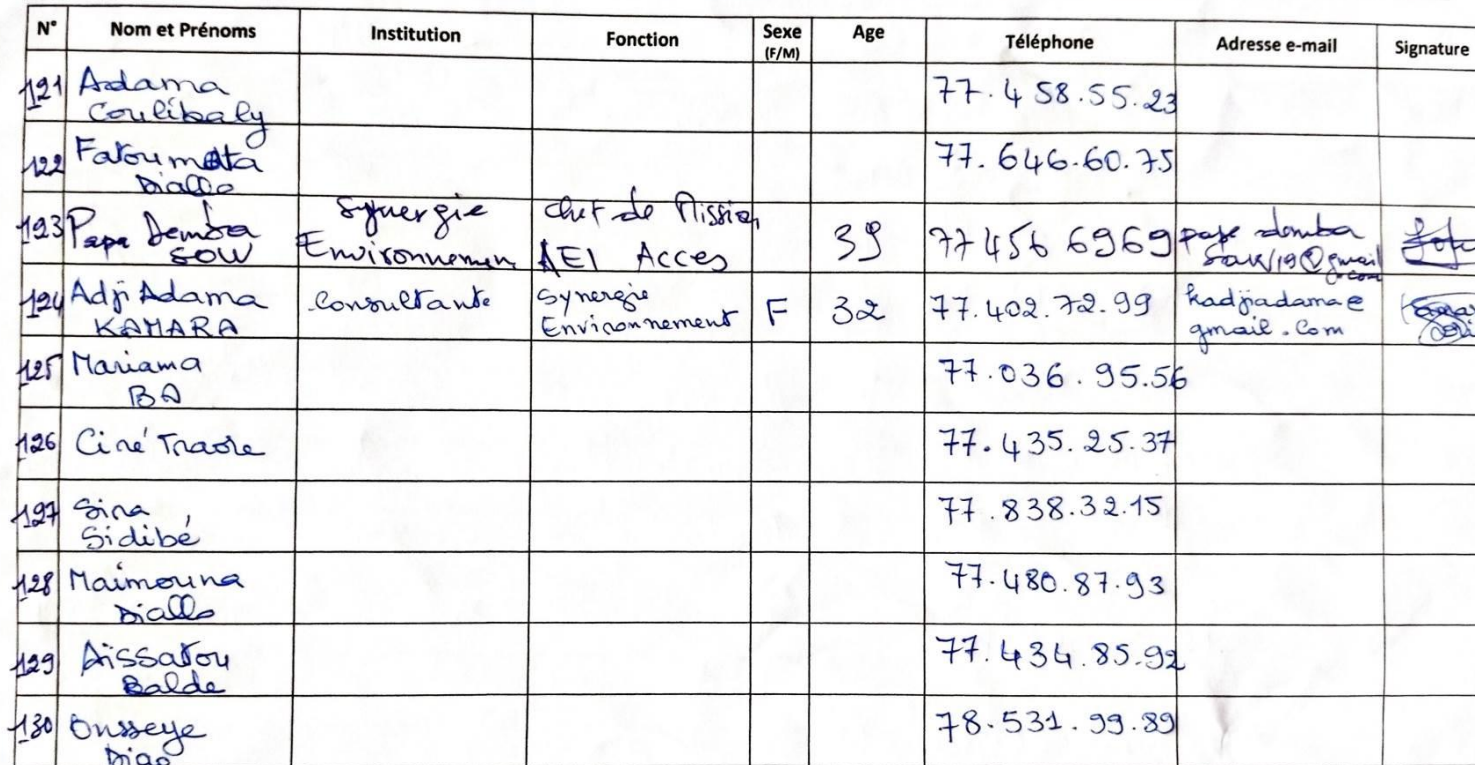 N° Nom et Prénoms Institution Fonction Sexe (F/M) Age Téléphone Adresse e-mail Signature
121 Adama Coulibaly 77.458.55.23
122 Fatoumata Diallo 77.646.60.75
123 Papa Demba SOW Synergie Environnemen Chef de Mission AEI Acces 39 77 456 6969 pape demba
124 Adji Adama KAMARA Consultante Synergie Environnement F 32 77.402.72.99 kadjiadama@gmail.com
125 Mariama BA 77.036.95.56
126 Ciré Traore 77.435.25.37
127 Sira Sidibé 77.838.32.15
128 Maimouna Diallo 77.480.87.93
129 Aissatou Balde 77.434.85.92
130 Ousseye 78.531.99.89